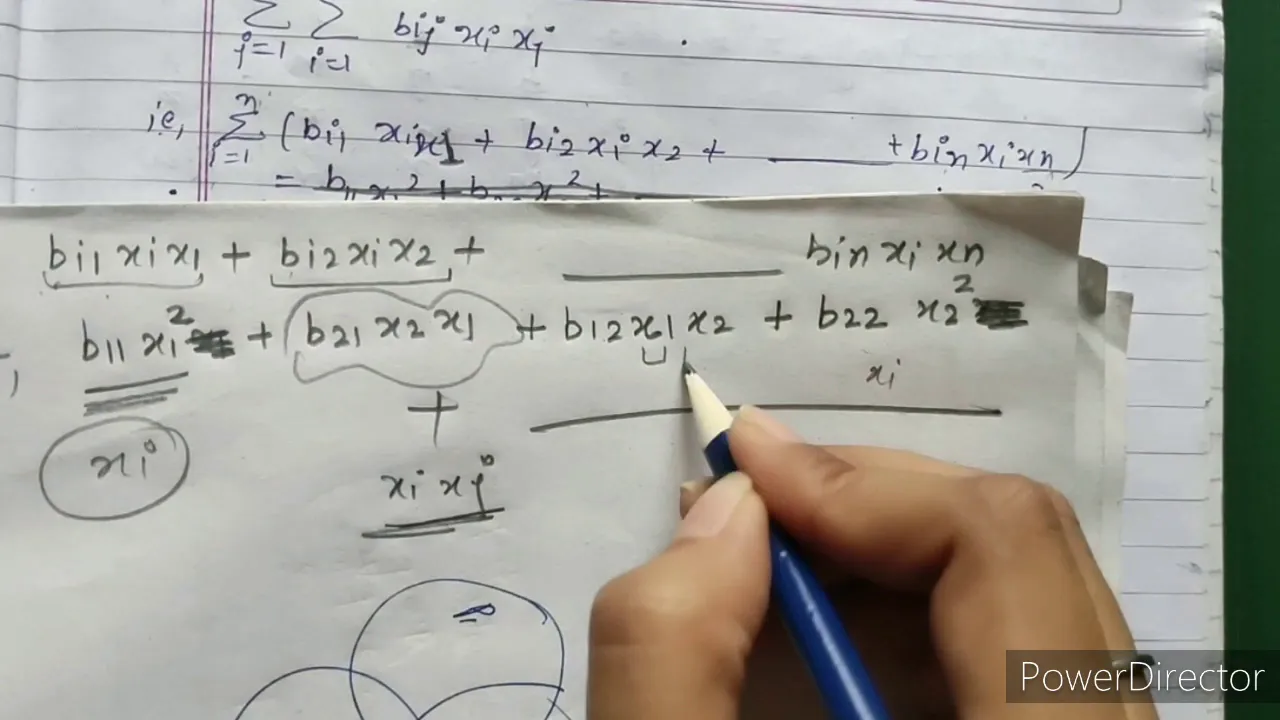 Σ Σ bij xi xj
j=1 i=1
n
ie, Σ (bi1 xi x1 + bi2 xi x2 + ——— + bin xi xn)
i=1
= b11 x1² + b22 x2² +
bi1 xi x1 + bi2 xi x2 + ——— bin xi xn
b11 x1² + b21 x2 x1 + b12 x1 x2 + b22 x2²
xi
+ ———
xi
xi xj
PowerDirector